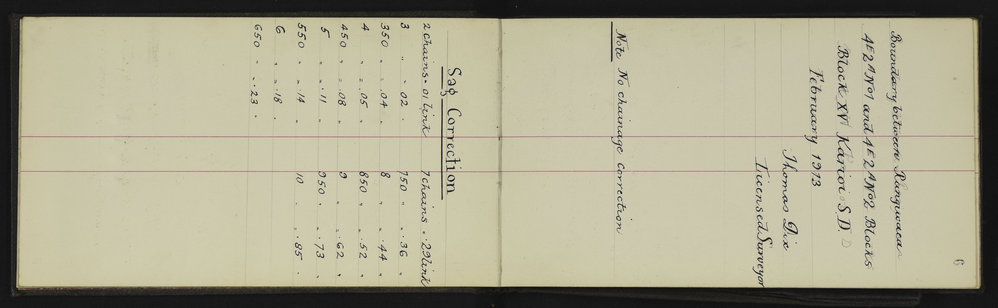 6
Boundary between Rangiwaea
4E2A No1 and 4E2A No2 Blocks
Block XVI Karioi S.D.
February 1913
Thomas Dix
Licensed Surveyor
Note No chainage correction
Sag Correction
2 chains = .01 link 7 chains = .29 link
3 " = .02 " 750 " = .36 "
350 " = .04 " 8 " = .44 "
4 " = .05 " 850 " = .52 "
450 " = .08 " 9 " = .62 "
5 " = .11 " 950 " = .73 "
550 " = .14 " 10 " = .85 "
6 " = .18 "
650 " = .23 "